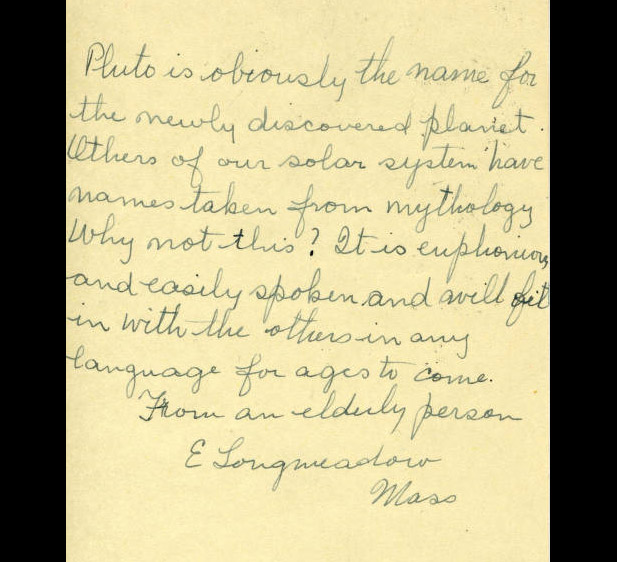 Pluto is obviously the name for
the newly discovered planet.
Others of our solar system have
names taken from mythology
Why not this? It is euphonious
and easily spoken and will fit
in with the others in any
language for ages to come.
From an elderly person
E Longmeadow
Mass